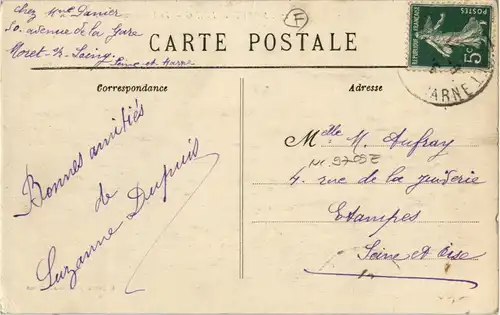 chez Mme Danier
50. avenue de la Gare
Moret s/ Loing
Seine et Marne
F
CARTE POSTALE
REPUBLIQUE FRANÇAISE
POSTES
5c
Correspondance
Adresse
Bonnes amitiés
de
Suzanne Dupuis
Melle M. Aufray
4. rue de la Juiverie
Etampes
Seine et Oise